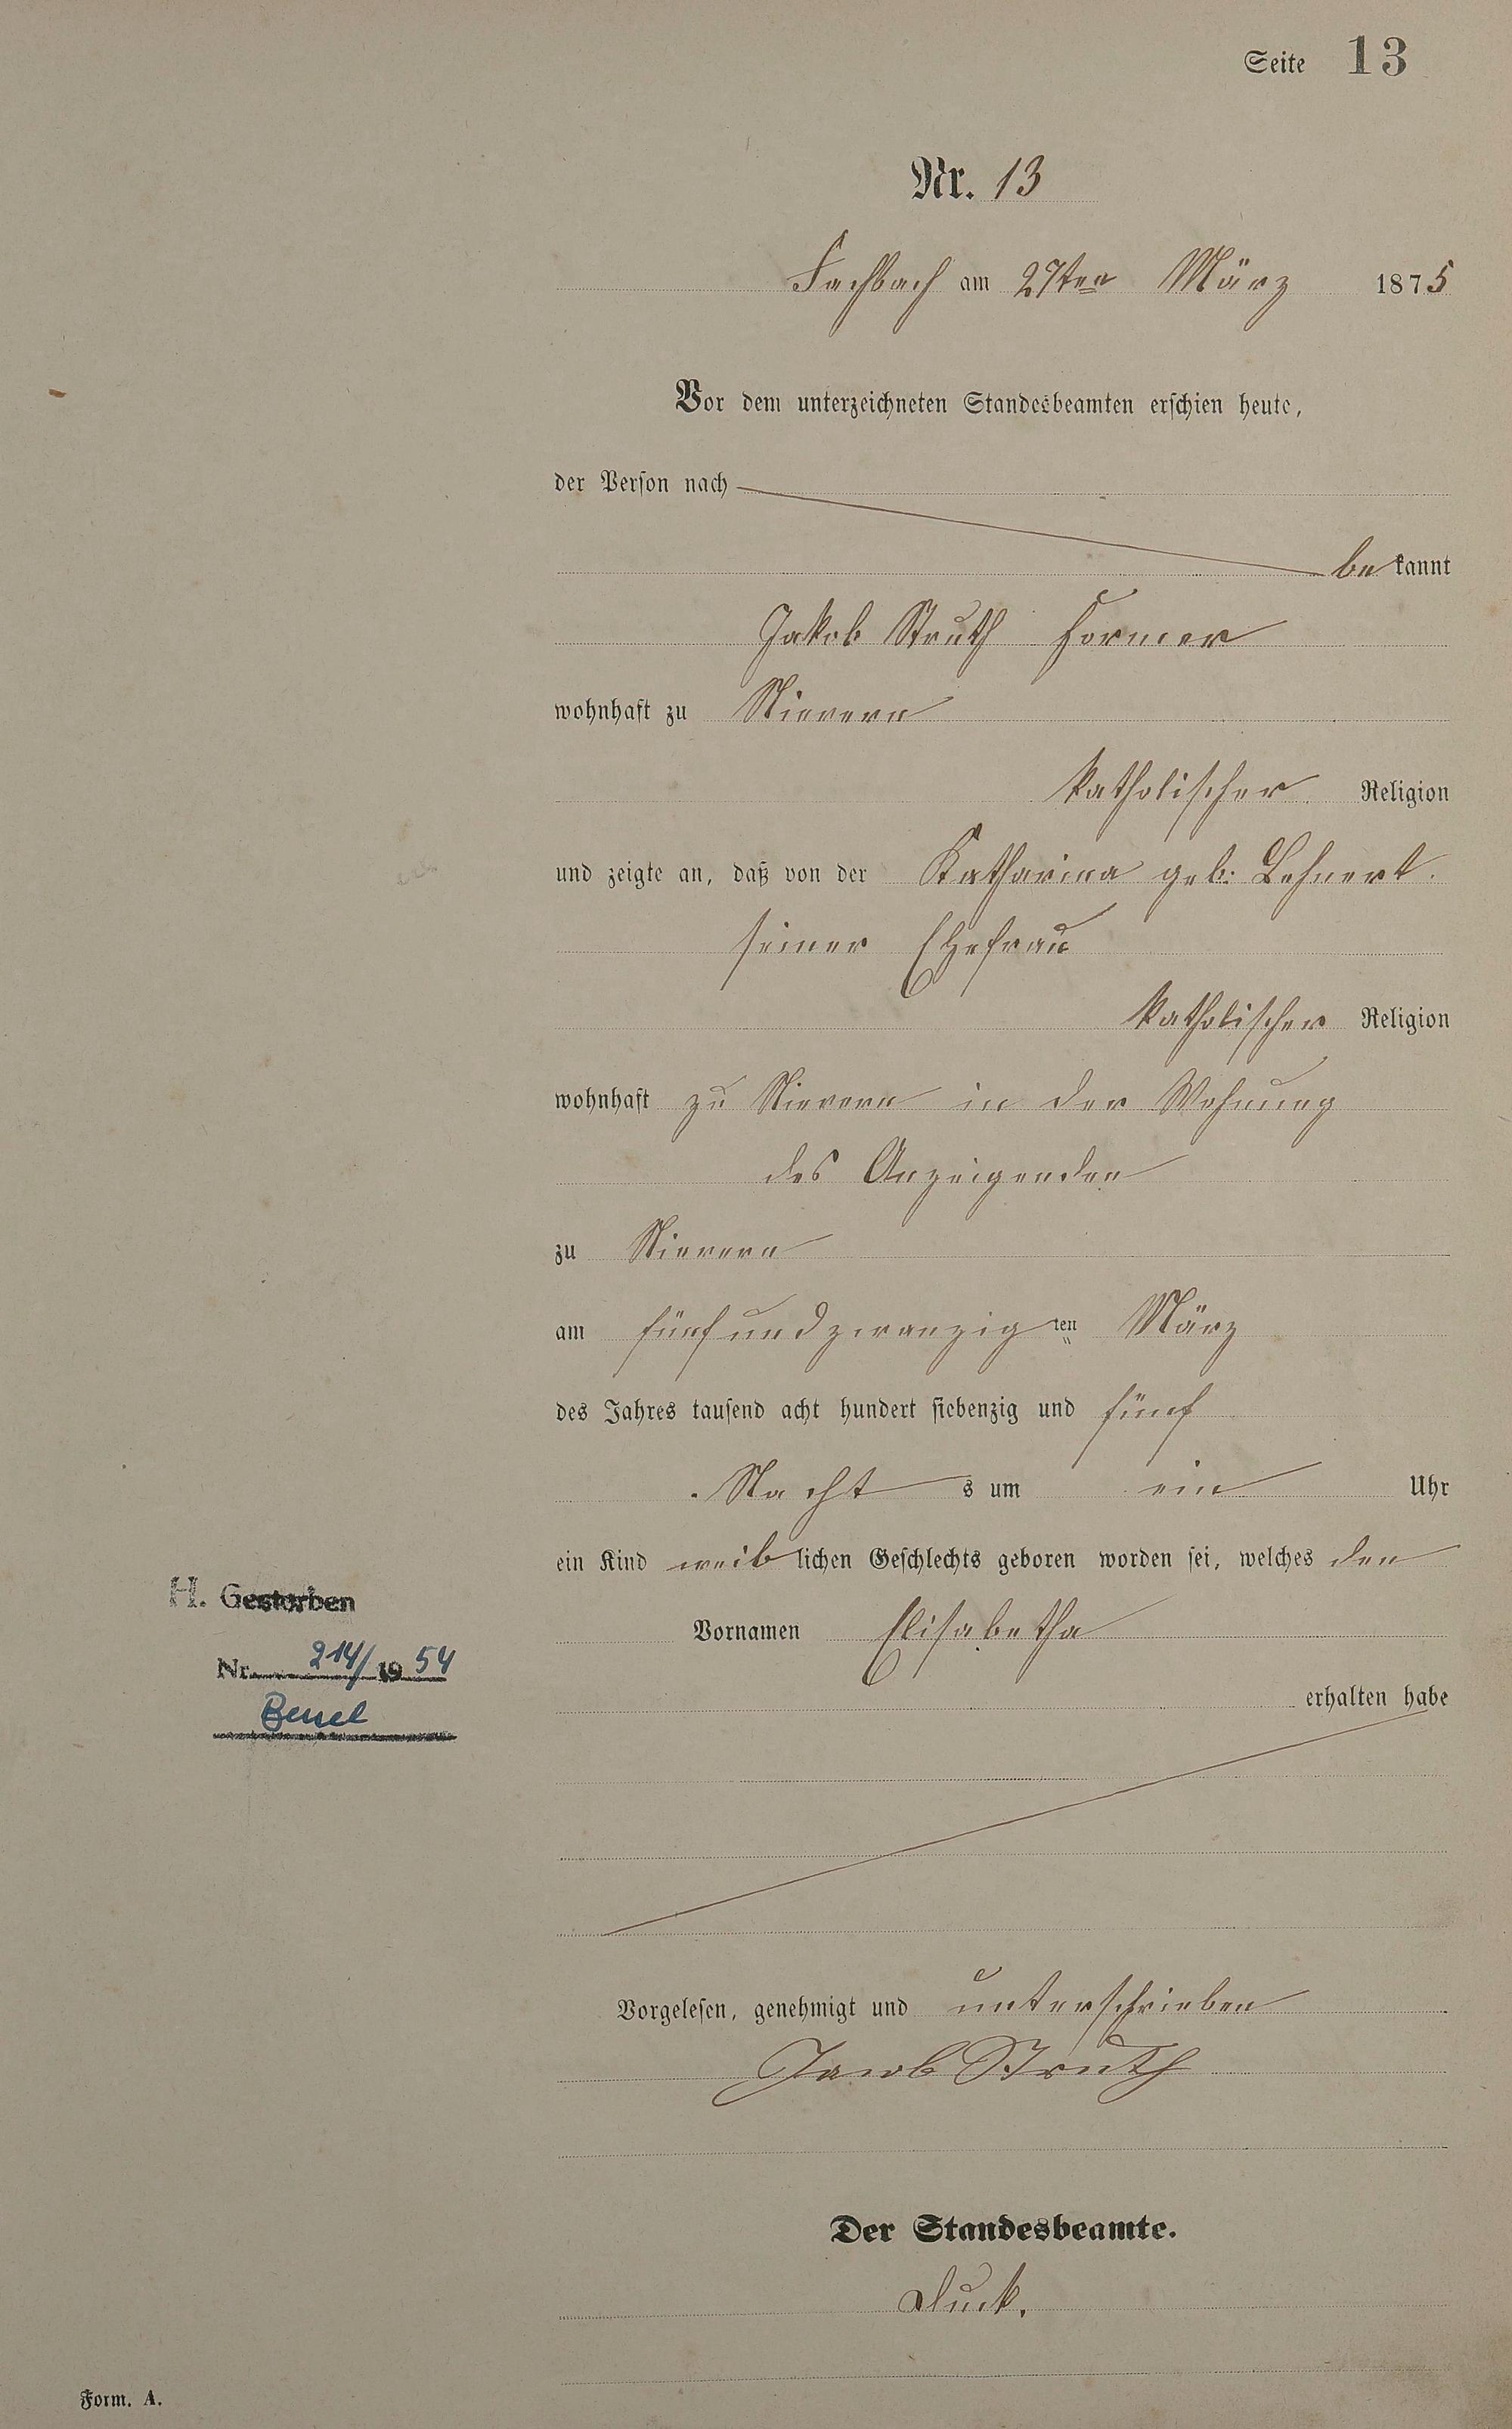 Seite 13
Nr. 13
Fachbach am 27ten März 1875
Vor dem unterzeichneten Standesbeamten erschien heute,
der Person nach
bekannt
Jakob Struth Former
wohnhaft zu Nievern
katholischer Religion
und zeigte an, daß von der Katharina geb: Lehnert.
seiner Ehefrau
katholischer Religion
wohnhaft zu Nievern in der Wohnung
des Anzeigenden
zu Nievern
am fünfundzwanzigten März
des Jahres tausend acht hundert siebenzig und fünf
Nachts um ein Uhr
ein Kind weiblichen Geschlechts geboren worden sei, welches den
H. Gestorben
Vornamen Elisabetha
Nr. 214/1954
erhalten habe
Vorgelesen, genehmigt und unterschrieben
Jacob Struth
Der Standesbeamte.
Form. A.